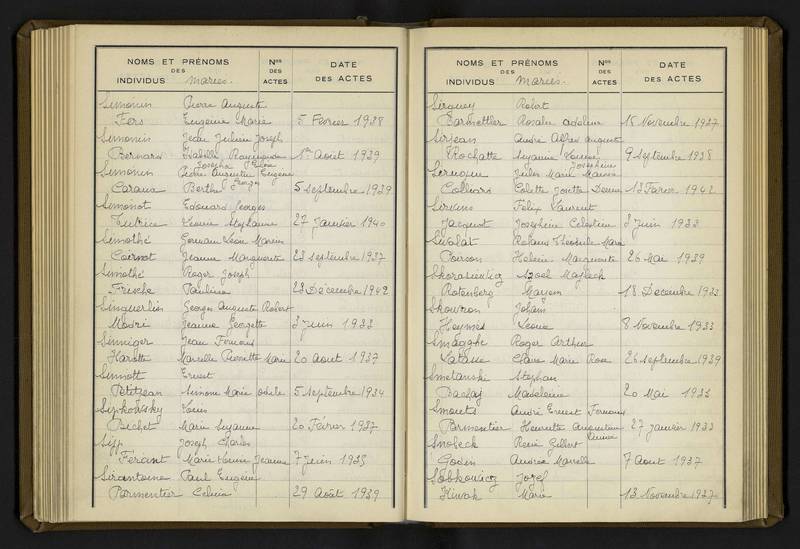 NOMS ET PRÉNOMS Nos DATE
DES DES DES ACTES
INDIVIDUS Mariés. ACTES
Simonin Pierre Auguste
Fers Eugénie Marie 5 Février 1938
Simonin Jean Julien Joseph
Bernard Isabelle Raymonde 1er Août 1939
Josepha
Simonin Pierre Augustin Eugène
Caraux Berthe Georges 5 septembre 1929
Simonot Edouard Georges
Tutrice Léonie Stéphanie 27 Janvier 1940
Simothé Germain Léon Marin
Coirnot Jeanne Marguerite 23 septembre 1937
Simothé Roger Joseph
Frische Pauline 23 Décembre 1942
Singuerlin Georges Auguste Robert
Madri Jeanne Georgette 3 Juin 1933
Sinniger Jean François
Harotte Marcelle Pierrette Marie 20 août 1937
Sinnott Ernest
Petitjean Simone Marie Odile 5 septembre 1934
Sipkowsky Louis
Bichet Marie Suzanne 20 Février 1937
Sipp Joseph Charles
Ferant Marie Louise Jeanne 7 Juin 1935
Sirantoine Paul Eugène
Parmentier Celina 29 Août 1939
NOMS ET PRÉNOMS Nos DATE
DES DES DES ACTES
INDIVIDUS Mariés. ACTES
Sirguey Robert
Barmettler Rosalie Adeline 15 Novembre 1937
Sirjean André Alfred Auguste
Rochatte Suzanne Louise 9 Septembre 1938
Joséphine
Siruguе Jules Marie Maurice
Colliard Colette Josette Denise 13 Février 1942
Sirvins Félix Laurent
Jacquot Joséphine Célestine 3 Juin 1933
Sivalat Roland Théodule Marie
Poirson Hélène Marguerite 26 Mai 1939
Skorasinticz Szoel Majlech
Rotenberg Mayem 18 Décembre 1933
Skowron Johann
Heymes Léonie 8 Novembre 1933
Smagghe Roger Arthur
Latasse Claire Marie Rose 26 septembre 1939
Smetanski Stephan
Baclaj Madeleine 20 Mai 1935
Smouts André Ernest Fernand
Parmentier Henriette Augustine 27 Janvier 1933
Snobeck René Gilbert
Godin Andrée Marcelle 7 août 1937
Sobkowicz Jozef
Hiwak Marie 13 Novembre 1937